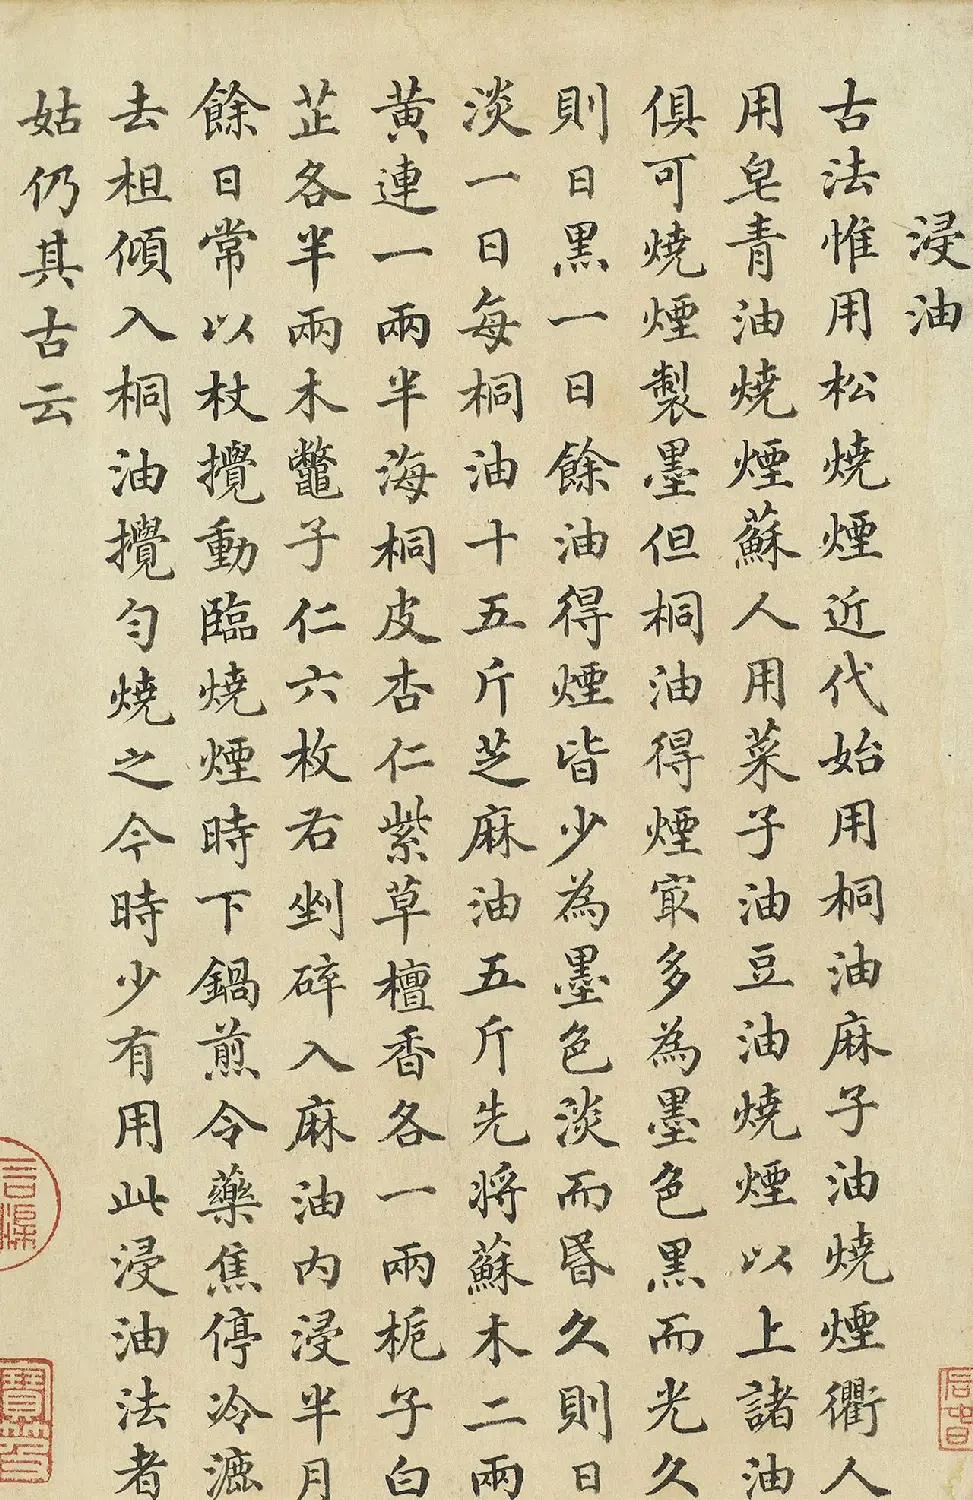 浸油
古法惟用松燒煙近代始用桐油麻子油燒煙衢人
用皂青油燒煙蘇人用菜子油豆油燒煙以上諸油
俱可燒煙製墨但桐油得煙冣多為墨色黑而光久
則日黑一日餘油得煙皆少為墨色淡而昏久則日
淡一日每桐油十五斤芝麻油五斤先將蘇木二兩
黄連一兩半海桐皮杏仁紫草檀香各一兩栀子白
芷各半兩木鼈子仁六枚右剉碎入麻油内浸半月
餘日常以杖攪動臨燒煙時下鍋煎令藥焦停冷漉
去柤傾入桐油攪匀燒之今時少有用此浸油法者
姑仍其古云